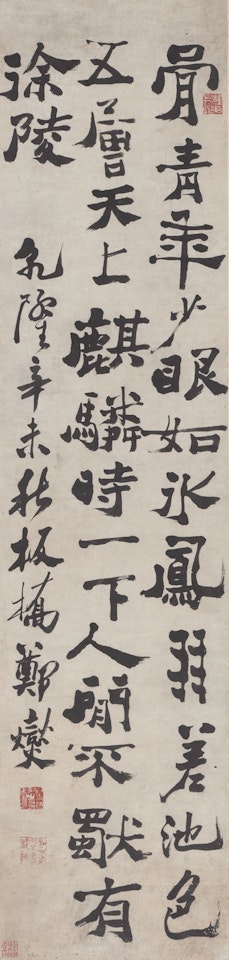 骨青年少眼如冰鳳羽差池色
五層天上麒麟時一下人間不獨有
徐陵
乾隆辛未秋板橋鄭燮